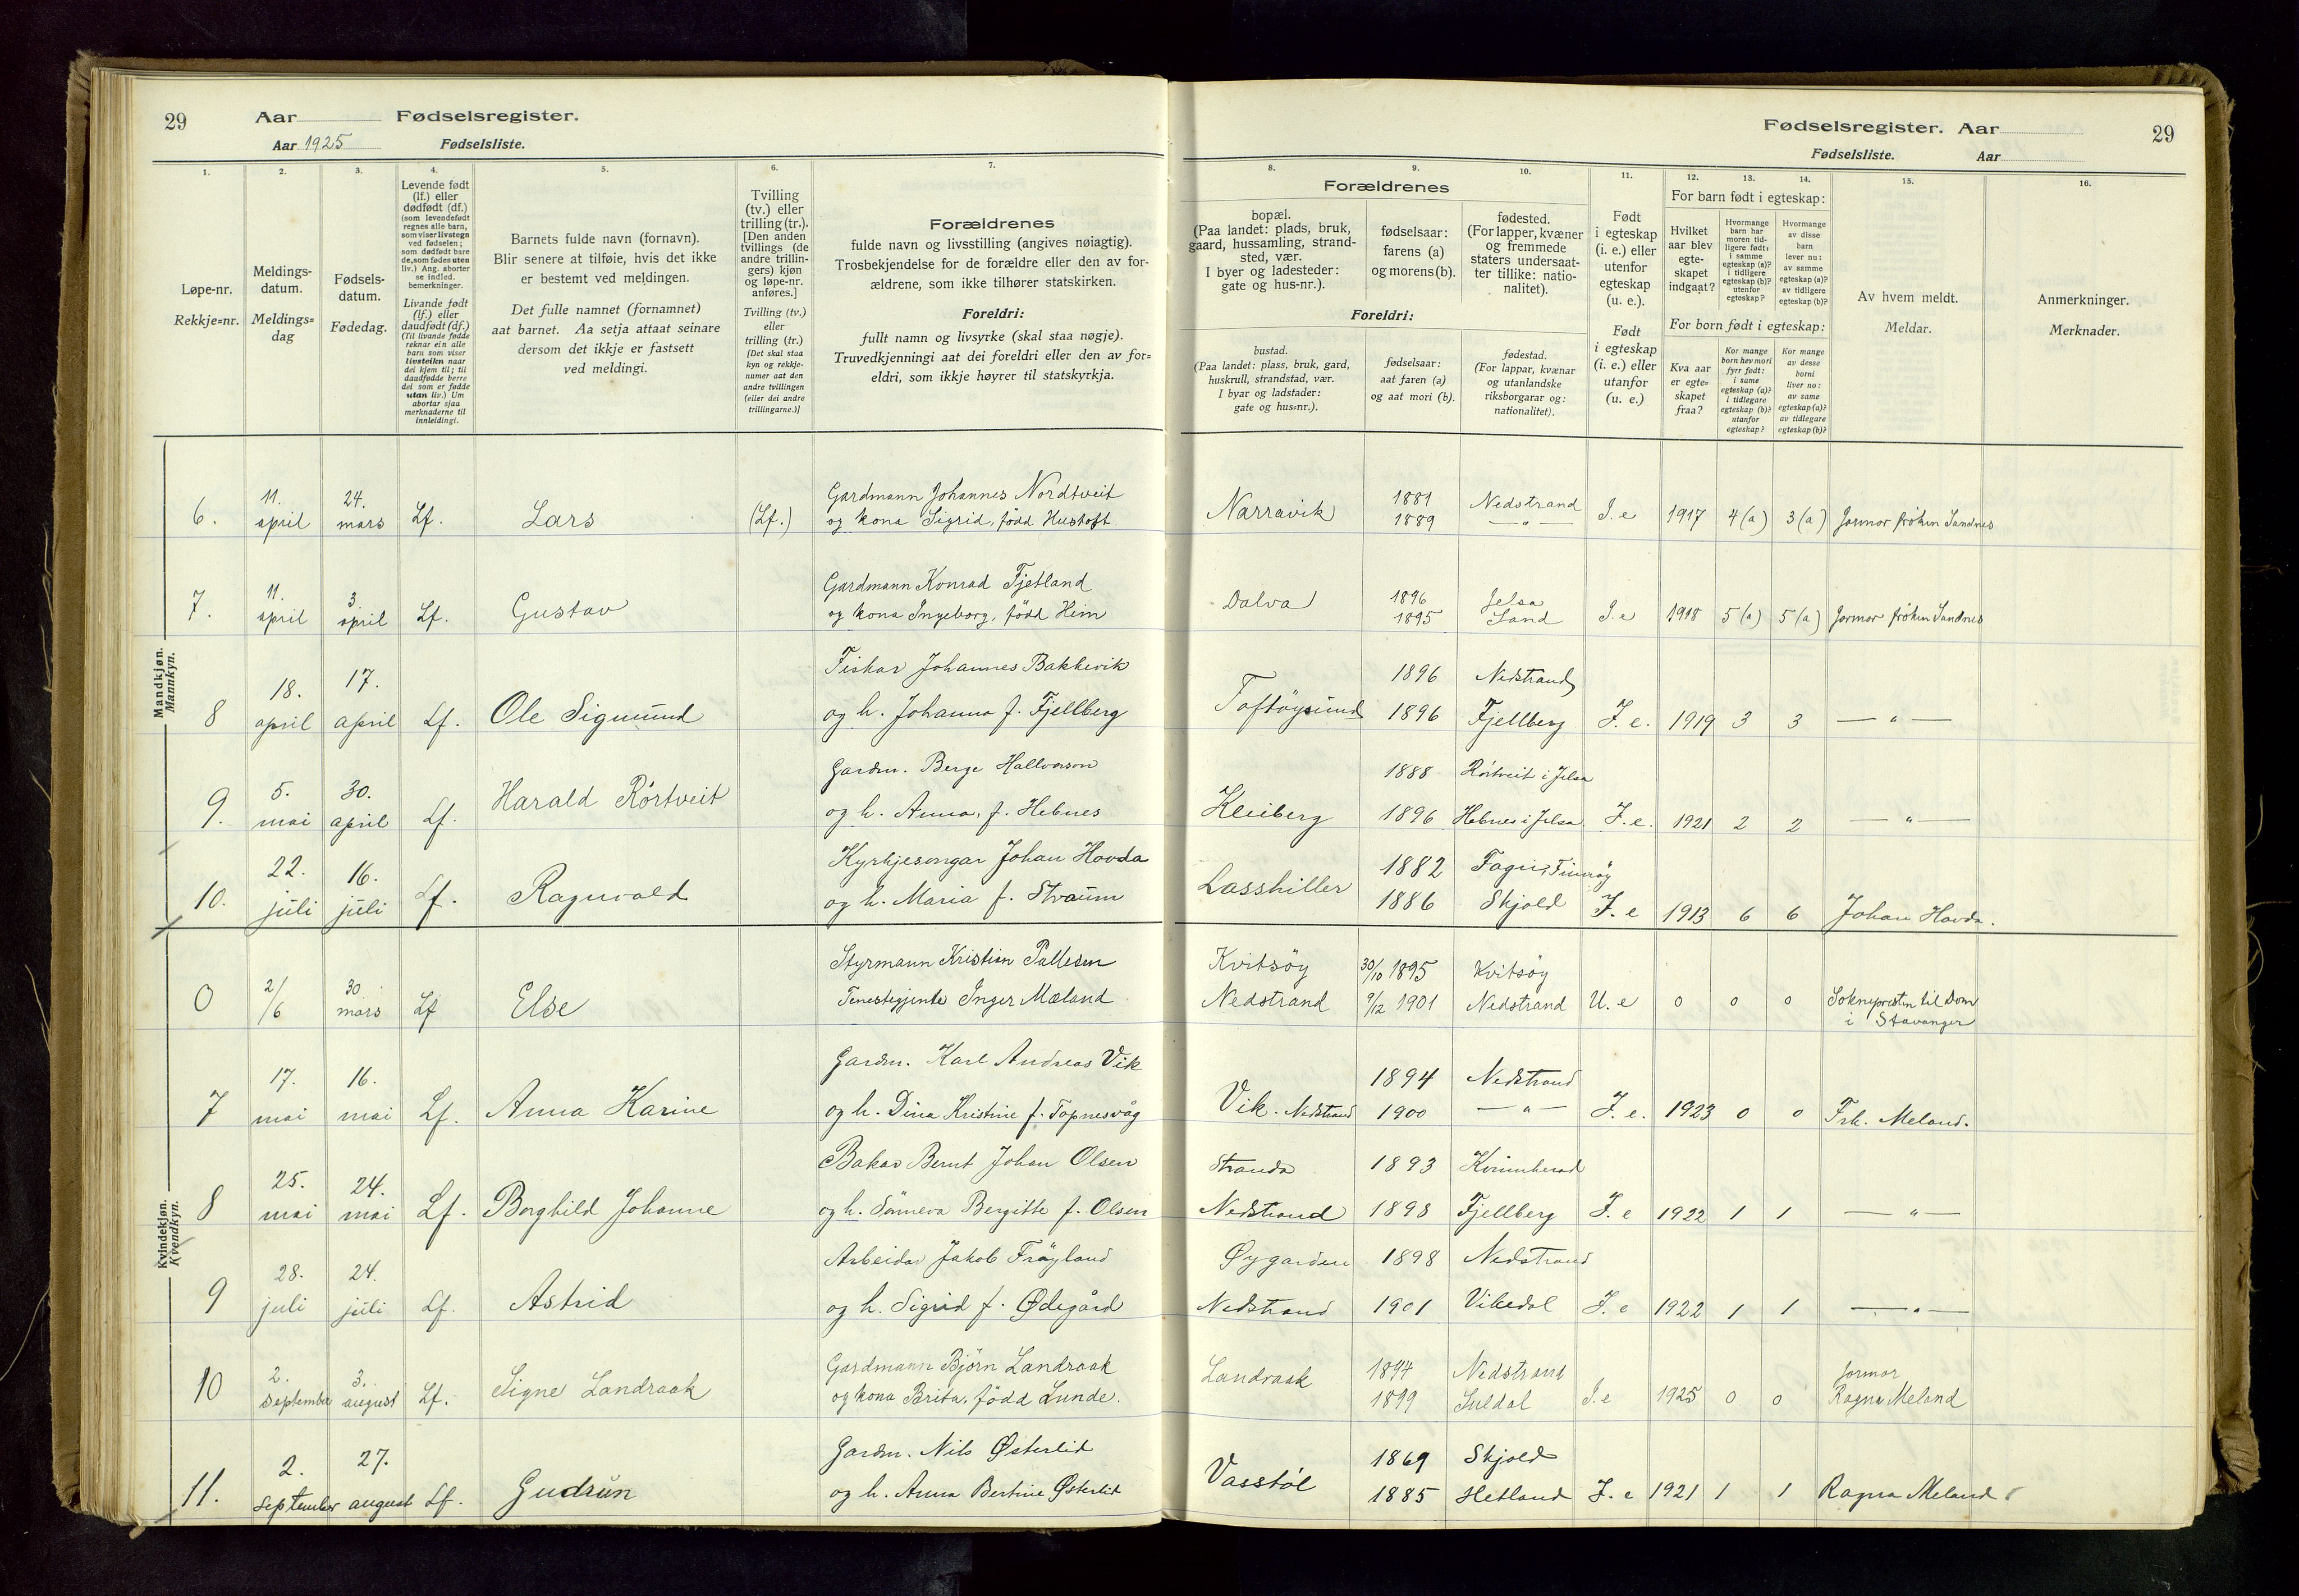 29 Aar Fødselsregister.
Aar 1925 Fødselsliste.
1. 2. 3. 4. 5. 6. 7.
Løpe-nr.
Rekkje=nr.
Meldings-
datum.
Meldings=
dag
Fødsels-
datum.
Fødedag.
Levende født
(lf.) eller
dødfødt (df.)
(som levendefødt
regnes alle barn,
som viser livstegn
ved fødselen;
som dødfødt bare
de, som fødes uten
liv.) Ang. aborter
se indled.
bemerkninger.
Livande født
(lf.) eller
daudfødt (df.)
(Til livande fødde
reknar ein alle
barn som viser
livsteikn naar
dei kjem til; til
daudfødde berre
dei som er fødde
utan liv.) Um
abortar sjaa
merknaderne til
innleidingi.
Barnets fulde navn (fornavn).
Blir senere at tilføie, hvis det ikke
er bestemt ved meldingen.
Det fulle namnet (fornamnet)
aat barnet. Aa setja attaat seinare
dersom det ikkje er fastsett
ved meldingi.
Tvilling
(tv.) eller
trilling (tr.).
[Den anden
tvillings (de
andre trillin-
gers) kjøn
og løpe-nr.
anføres.]
Tvilling (tv.)
eller
trilling (tr.)
[Det skal staa
kyn og rekkje-
numer aat den
andre tvillingen
(eller dei andre
trillingarne.)]
Forældrenes
fulde navn og livsstilling (angives nøiagtig).
Trosbekjendelse for de forældre eller den av for-
ældrene, som ikke tilhører statskirken.
Foreldri:
fullt namn og livsyrke (skal staa nøgje).
Truvedkjenningi aat dei foreldri eller den av for=
eldri, som ikkje høyrer til statskyrkja.
Mandkjøn.
Mannkyn.
6. 11. april 24. mars Lf. Lars (Lf.) Gardmann Johannes Nordtveit
og kona Sigrid, född Hustoft.
7. 11. april 3 april Lf. Gustav Gardmann Konrad Tjetland
og kona Ingeborg, född Heim
8 18. april 17. april Lf. Ole Sigmund Fiskar Johannes Bakkevik
og h. Johanna f. Fjellberg
9. 5. mai 30. april Lf. Harald Rörtveit Gardm. Berge Hallvorson
og h. Anna, f. Hebnes
10. 22. juli 16. juli Lf. Ragnvald Kyrkjesongar Johan Hovda
og h. Maria f. Straum
Kvindekjøn.
Kvendkyn.
0 2/6 30 mars Lf Else Styrmann Kristian Pallesen
Tenestegjenta Inger Mæland
7 17. mai 16. mai Lf. Anna Karine Gardm. Karl Andreas Vik
og h. Dina Kristine f. Topnesvåg
8 25. mai 24. mai Lf. Borghild Johanne Bakar Bernt Johan Olsen
og h. Sönneva Bergitte f. Olsen
9 28. juli 24. juli Lf. Astrid Arbeidar Jakob Fröyland
og h. Sigrid f. Ødegård
10 2. september 3. august Lf. Signe Landraak Gardmann Björn Landraak
og kona Brita, född Lunde.
11. 2. september 27. august Lf. Gudrun Gardm. Nils Østerlid
og h. Anna Bertine Østerlid
Fødselsregister. Aar 29
Fødselsliste. Aar
8. 9. 10. 11. 12. 13. 14. 15. 16.
Forældrenes
bopæl.
(Paa landet: plads, bruk,
gaard, hussamling, strand-
sted, vær.
I byer og ladesteder:
gate og hus-nr.).
fødselsaar:
farens (a)
og morens (b).
fødested.
(For lapper, kvæner
og fremmede
staters undersaat-
ter tillike: natio-
nalitet).
Foreldri:
bustad.
(Paa landet: plass, bruk, gard,
huskrull, strandstad, vær.
I byar og ladstader:
gate og hus=nr.).
fødselsaar:
aat faren (a)
og aat mori (b).
fødestad.
(For lappar, kvænar
og utanlandske
riksborgarar og:
nationalitet).
Født
i egteskap
(i. e.) eller
utenfor
egteskap
(u. e.).
Født
i egteskap
(i. e.) eller
utanfor
(u. e.)
For barn født i egteskap:
Hvilket
aar blev
egte-
skapet
indgaat?
Hvormange
barn har
moren tid-
ligere født:
i samme
egteskap (a)?
i tidligere
egteskap (b)?
utenfor
egteskap?
Hvormange
av disse
barn
lever nu:
av samme
egteskap (a)?
av tidligere
egteskap (b)?
For born født i egteskap:
Kva aar
er egte=
skapet
fraa?
Kor mange
born hev mori
fyrr født:
i same
egteskap (a)?
i tidlegare
egteskap (b)?
utanfor
egteskap?
Kor mange
av desse
borni
liver no:
av same
egteskap (a)?
av tidlegare
egteskap (b)?
Av hvem meldt.
Meldar.
Anmerkninger.
Merknader.
Narravik 1881 Nedstrand
1889 — " — I. e 1917 4 (a) 3 (a) Jormor fröken Sandnes
Dalva 1896 Jelsa
1895 Sand I. e 1918 5 (a) 5 (a) Jormor fröken Sandnes
Toftöysund 1896 Nedstrand
1896 Fjellberg I. e. 1919 3 3 — " —
Kleiberg 1888 Rörtveit i Jelsa
1896 Hebnes i Jelsa I. e. 1921 2 2 — " —
Lasshiller 1882 Finnöy
1886 Skjold I. e 1913 6 6 Johan Hovda.
Kvitsöy 30/10 1895 Kvitsöy
Nedstrand 9/12 1901 Nedstrand U. e 0 0 0 Soknepresten til Dom
i Stavanger
Vik. Nedstrand 1894 Nedstrand
1900 — " — I. e. 1923 0 0 Frk. Meland.
Stranda 1893 Kvinnherad
Nedstrand 1898 Fjellberg I. e 1922 1 1 — " —
Øygarden 1898 Nedstrand
Nedstrand 1901 Vikedal I. e 1922 1 1 — " —
Landraak 1894 Nedstrand
1899 Suldal I. e 1925 0 0 Jormor
Ragna Meland
Vasstöl 1869 Skjold
1885 Hetland I. e 1921 1 1 Ragna Meland